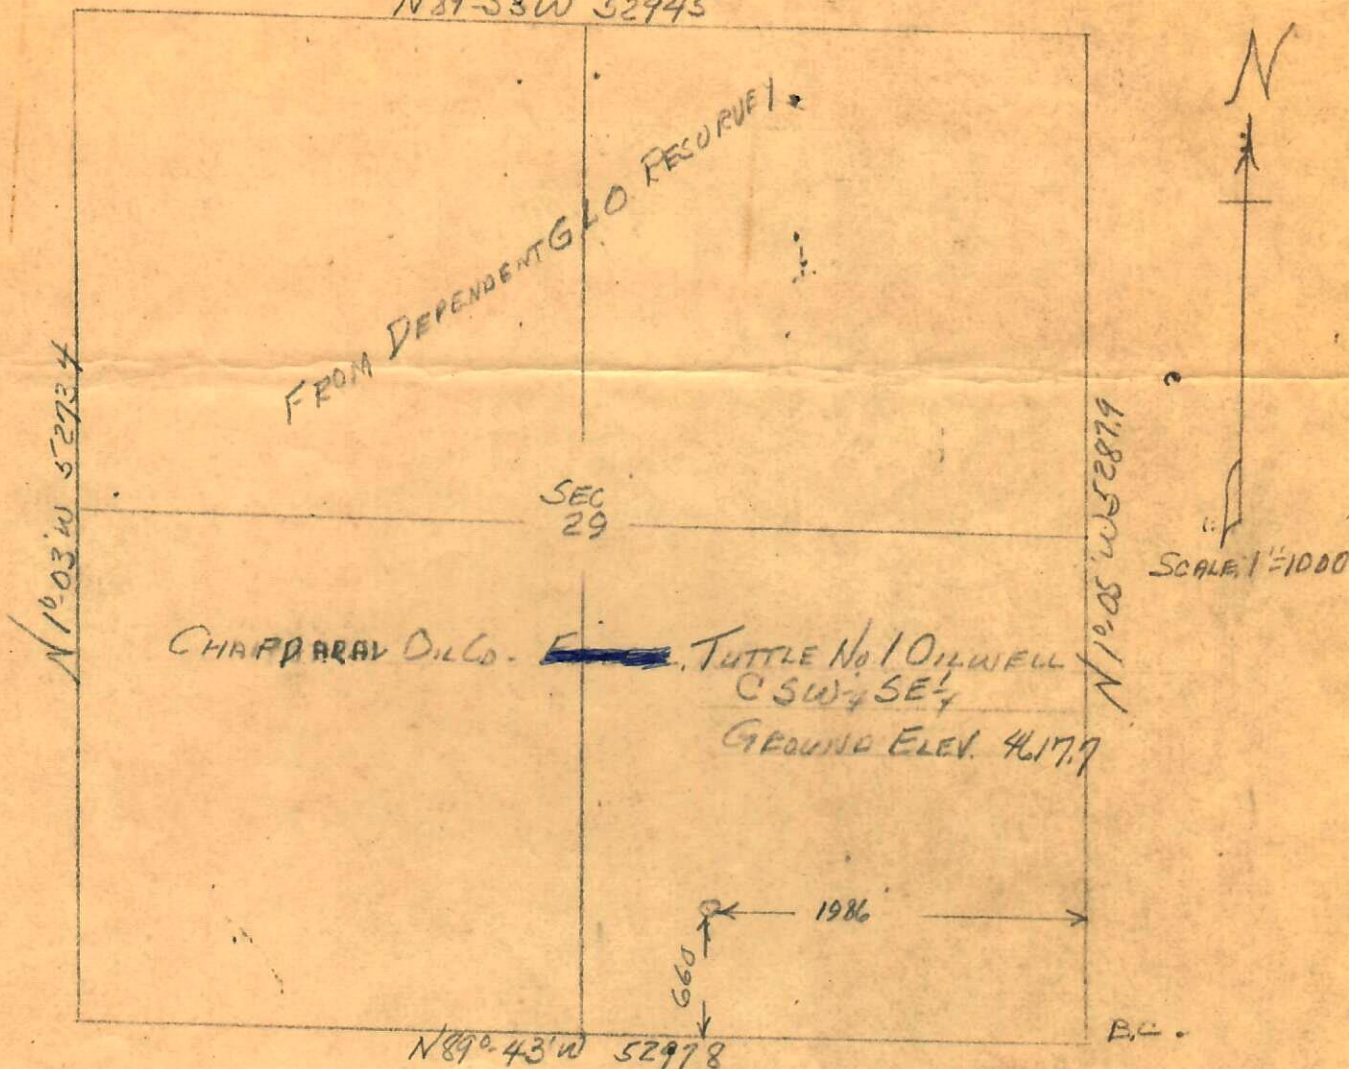 N89-53'W 5294.3
N
FROM DEPENDENT G.L.O. RESURVEY
N 1°-03'W 5273.4
N 1°-05'W 5287.9
SEC
29
SCALE 1"=1000
CHAPPARAL OIL CO. TUTTLE No 1 OILWELL
C SW¼ SE¼
GROUND ELEV. 4617.7
1986'
660
B.C.
N89°-43'W 5297.8